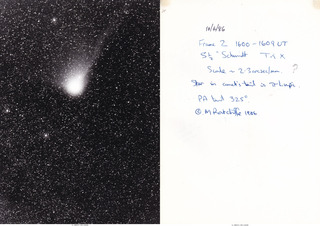 10/4/86
Frame 2 1600-1609 UT
5½" Schmidt Tri X
Scale ~ 2.3 arcsec/mm. ?
Star in comet's tail is
PA tail 325°
© M Ratcliffe 1986